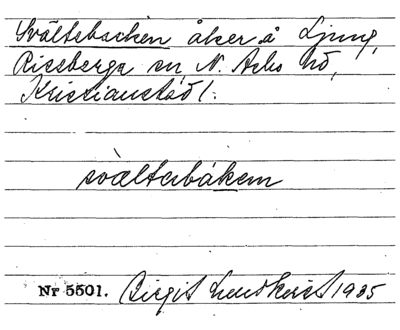 Svältsbacken åker å Ljung,
Riseberga sn, N. Åsbo hd,
Kristianstads l.
svæltesbákem
Nr 5501. Birgit Lundkvist 1935